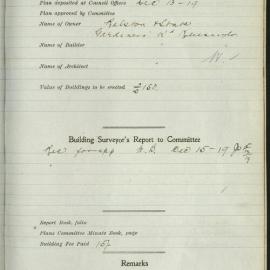 Plan deposited at Council Offices Dec 13-19
Plan approved by Committee
Name of Owner Kelston Estate
Gardiners Rd
Name of Builder
Name of Architect
Value of Buildings to be erected £
Building Surveyor's Report to Committee
Rec for app Dec 15-19
Report Book, folio
Plans Committee Minute Book, page
Building Fee Paid 15/
Remarks